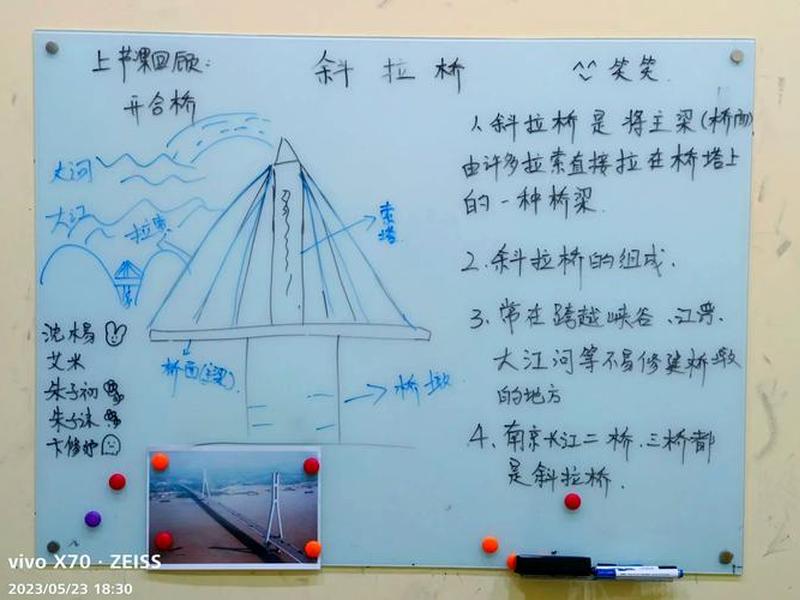 上节课回顾:
开合桥
斜拉桥
笑笑
1、斜拉桥是将主梁(桥面)
由许多拉索直接拉在桥塔上
的一种桥梁.
2.斜拉桥的组成.
3.常在跨越峡谷、江湾.
大江河等不易修建桥墩
的地方
4、南京长江二桥.三桥都
是斜拉桥.
大河
大江
拉索
索塔
桥面(主梁)
桥墩
沈杨
艾米
朱子初
朱子沫
卞修妒
vivo X70 · ZEISS
2023/05/23 18:30